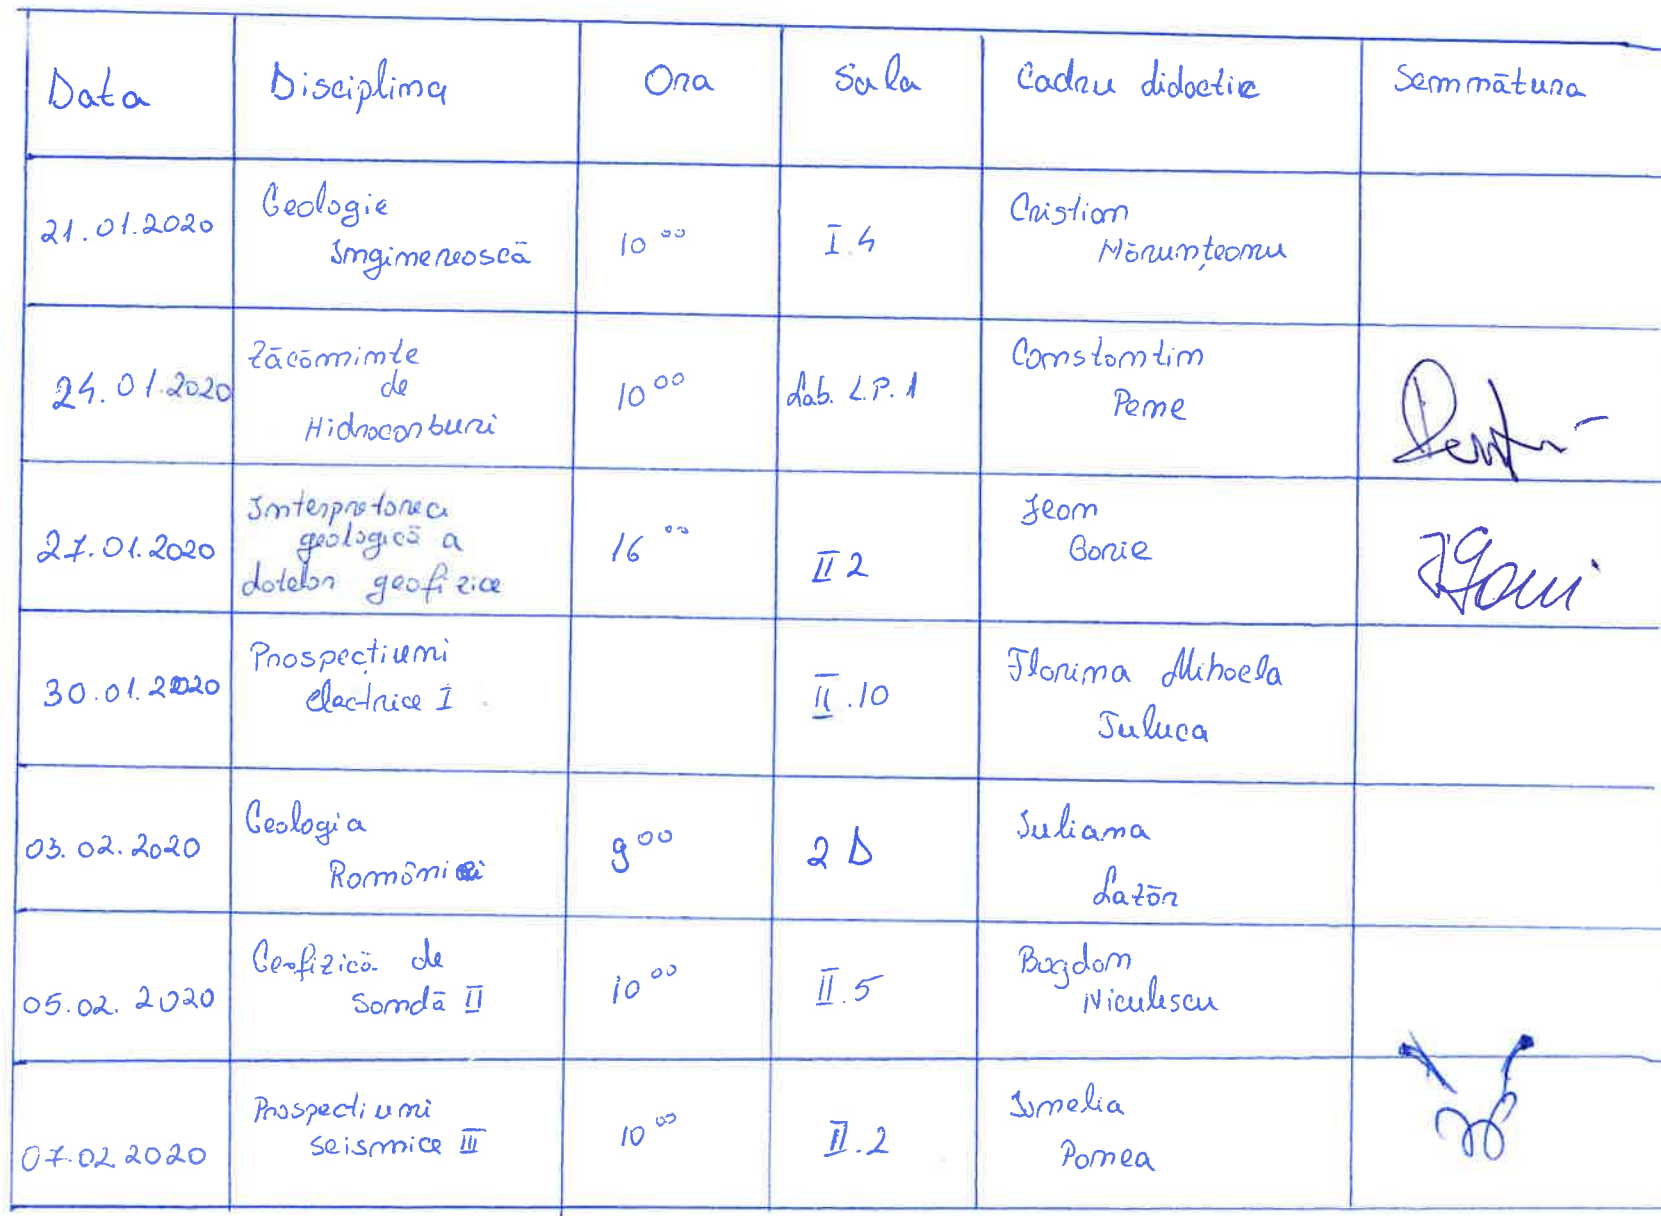 Data Disciplina Ora Sala Cadru didactic Semnătura
21.01.2020 Geologie
Inginerească 10⁰⁰ I.4 Cristian
Mărunțeanu
24.01.2020 Zăcăminte
de
Hidrocarburi 10⁰⁰ Lab. L.P. 1 Constantin
Pene
27.01.2020 Interpretarea
geologică a
datelor geofizice 16⁰⁰ II 2 Jean
Gorie
30.01.2020 Prospecțiuni
electrice I II.10 Florina Mihaela
Tuluca
03.02.2020 Geologia
României 9⁰⁰ 2 D Iuliana
Lazăr
05.02.2020 Geofizică de
Sondă II 10⁰⁰ II.5 Bogdan
Niculescu
07.02.2020 Prospecțiuni
seismice III 10⁰⁰ II.2 Ionelia
Panea